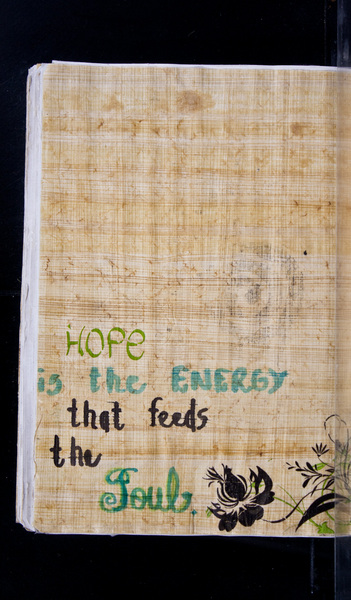 HOPE
is the ENERGY
that feeds
the
Soul.